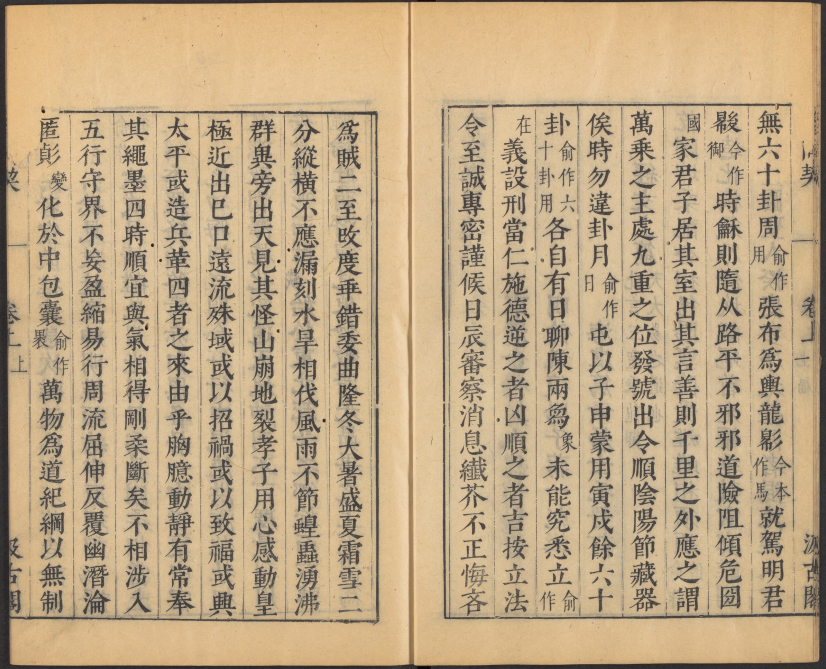 無六十卦周俞作用張布爲輿龍影今本作馬就駕明君
今作御時龢則隨从路平不邪邪道險阻傾危圀
國家君子居其室出其言善則千里之外應之謂
萬乗之主處九重之位發號出令順陰陽節藏器
俟時勿違卦月俞作日屯以子申蒙用寅戌餘六十
卦俞作六十卦用各自有日聊陳兩爲象未能究悉立俞作
在義設刑當仁施德逆之者凶順之者吉按立法
令至誠專密謹候日辰審察消息纖芥不正悔吝
契 卷上 汲古閣
爲賊二至攺度乖錯委曲隆冬大暑盛夏霜雪二
分縱橫不應漏刻水旱相伐風雨不節蝗蟲湧沸
群異旁出天見其怪山崩地裂孝子用心感動皇
極近出己口遠流殊域或以招禍或以致福或興
太平或造兵革四者之來由乎胸臆動靜有常奉
其繩墨四時順宜與氣相得剛柔斷矣不相涉入
五行守界不妄盈縮易行周流屈伸反覆幽潛淪
匿彭變化於中包囊俞作褁萬物爲道紀綱以無制
契 卷上 上 汲古閣